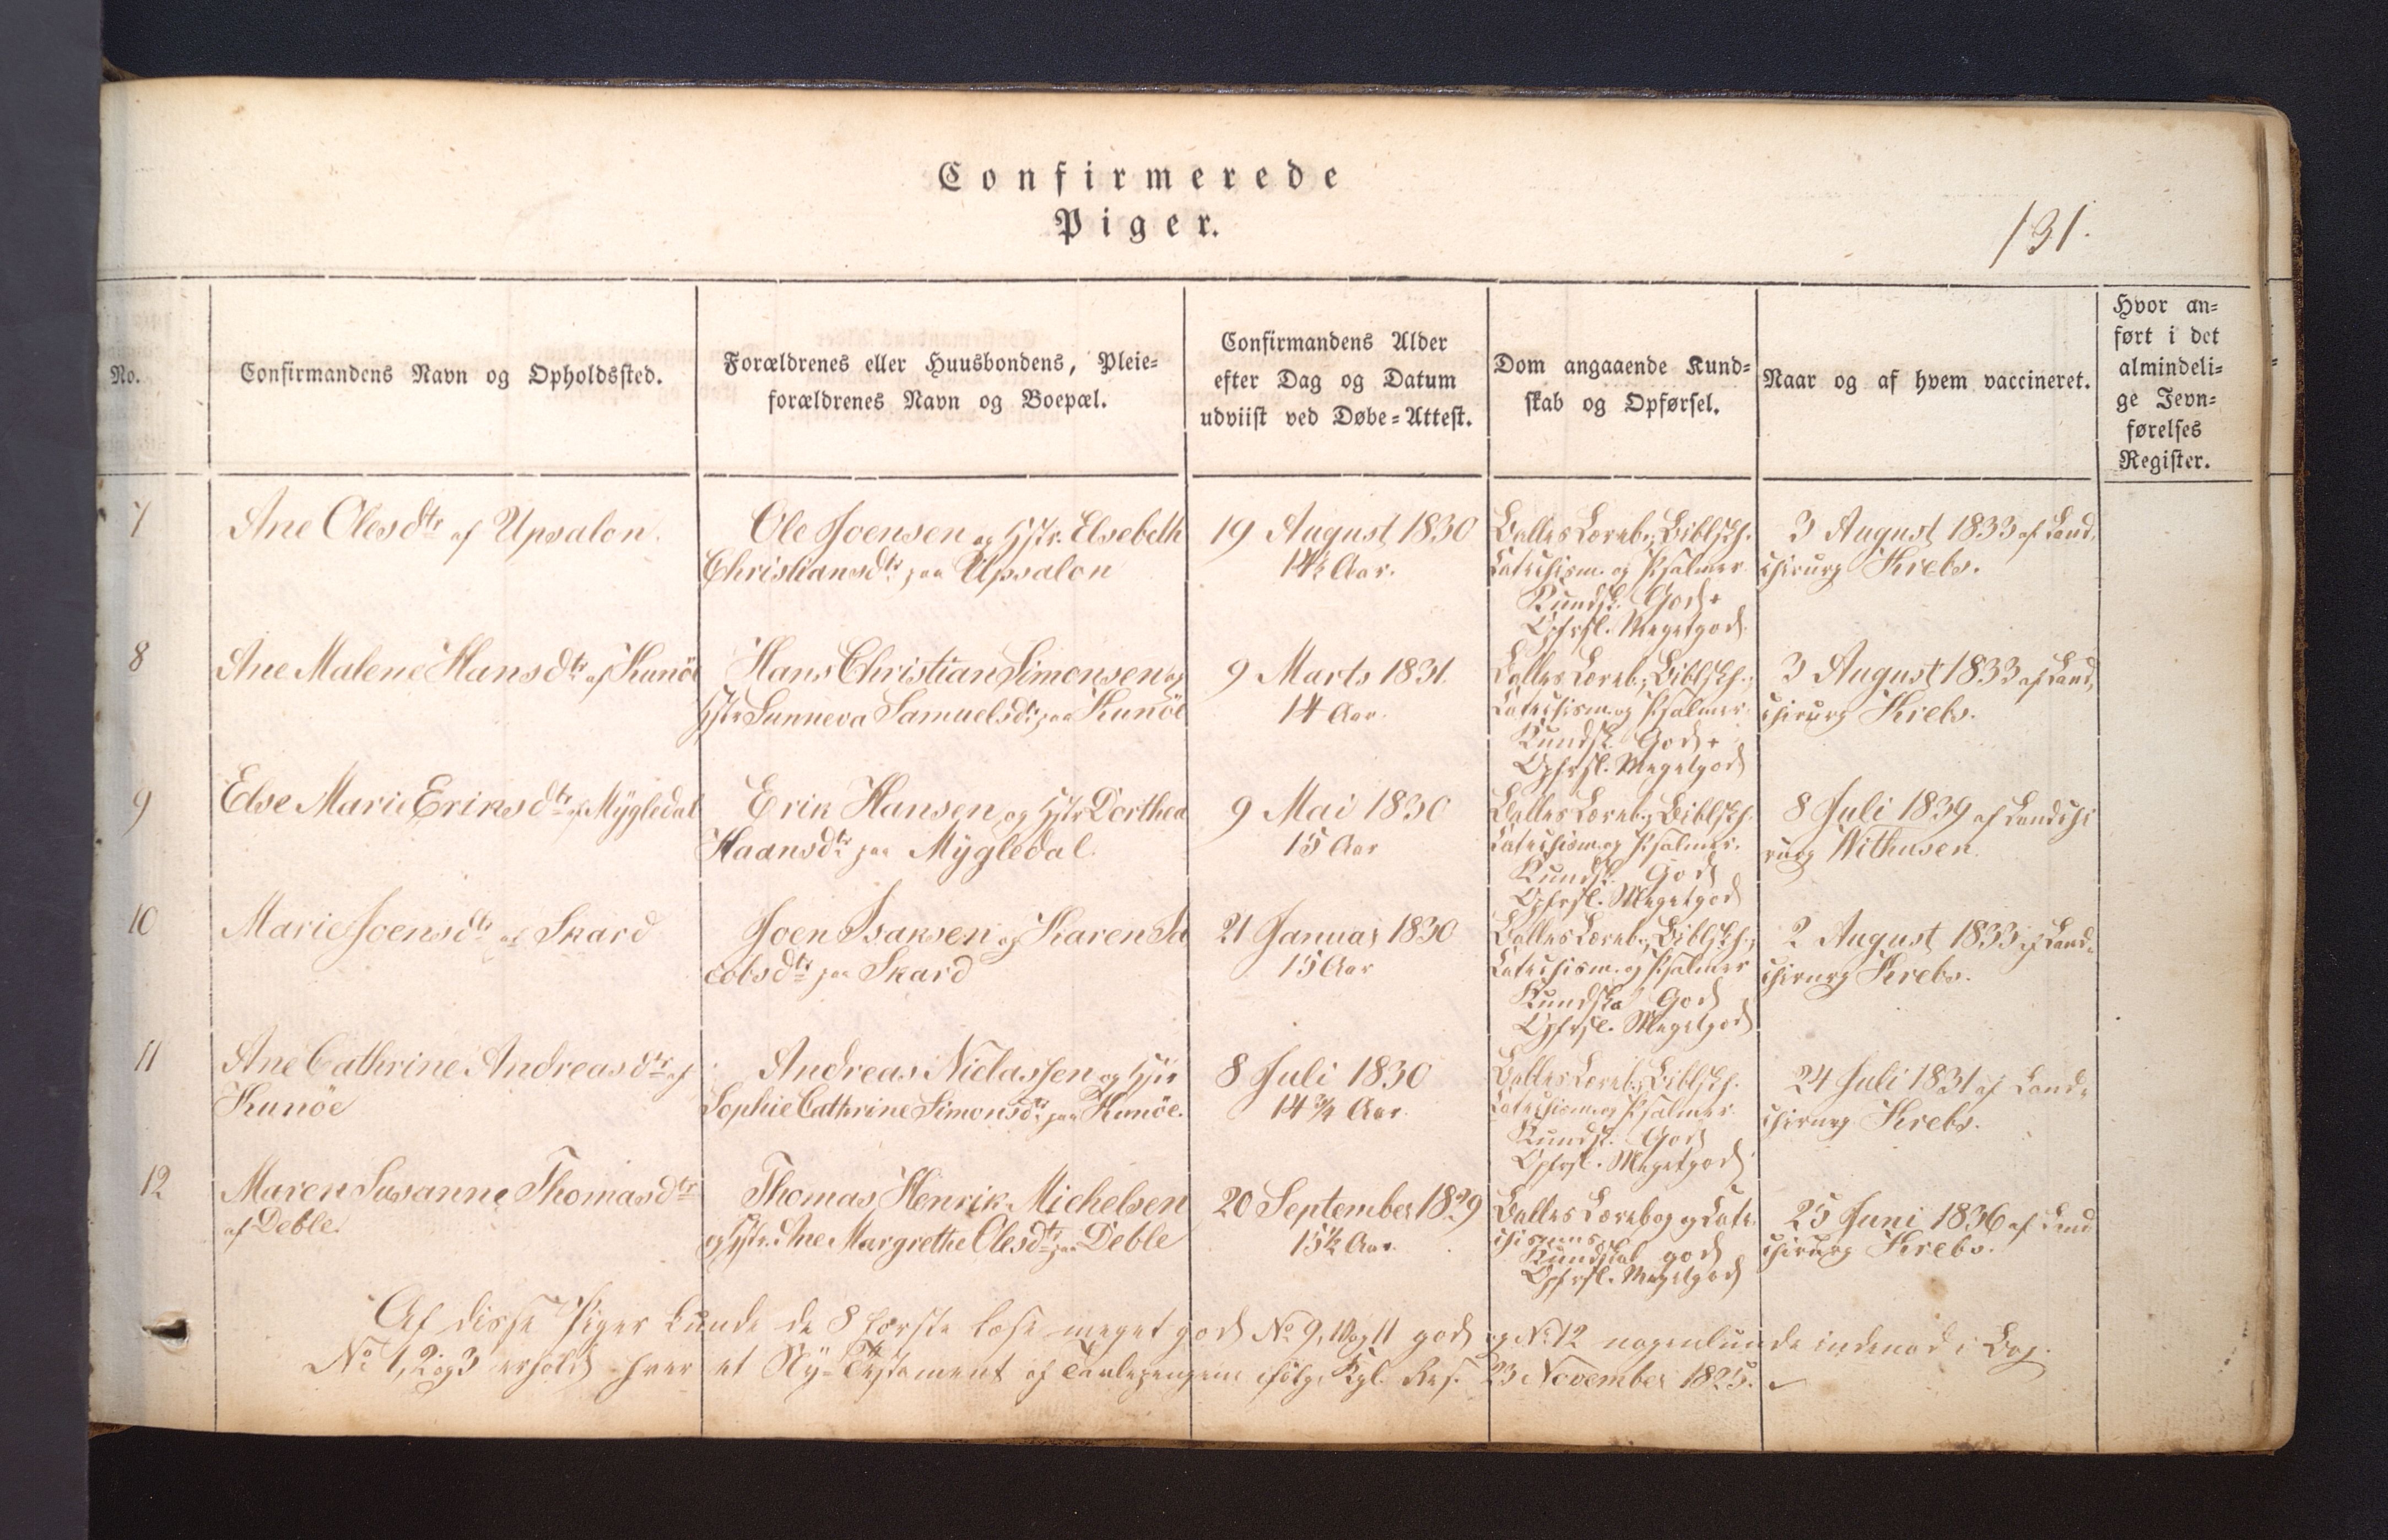 Confirmerede
Piger.
131.
No.
Confirmandens Navn og Opholdssted.
Forældrenes eller Huusbondens, Pleie=
forældrenes Navn og Boepæl.
Confirmandens Alder
efter Dag og Datum
udviist ved Døbe=Attest.
Dom angaaende Kund=
skab og Opførsel.
Naar og af hvem vaccineret.
Hvor an=
ført i det
almindeli=
ge Jevn=
førelses
Register.
7
Ane Olesdtr af Upsalon.
Ole Joensen og Hstr. Elsebeth
Christiansdtr paa Upsalon
19 August 1830
14½ Aar.
Balles Læreb., Biblhh.
Catechism. og Psalmer
Kundsk. God+
Opfrsl. Megetgod.
3 August 1833 af Land,
chirurg Krebs.
8
Ane Malene Hansdtr af Kunöe
Hans Christian Simonsen og
Hstr Sunneva Samuelsdtr paa Kunöe
9 Marts 1831.
14 Aar.
Balles Læreb., Biblhh.,
Catechism. og Psalmer.
Kundsk. God+
Opfrsl. Megetgod
3 August 1833 af Land,
chirurg Krebs.
9
Else Marie Eriksdtr af Mÿgledal
Erik Hansen og Hstr Dorthea
Haansdtr paa Mÿgledal.
9 Mai 1830
15 Aar
Balles Læreb., Biblhh.
Catechism. og Psalmer.
Kundsk. God
Opfrsl. Megetgod
8 Juli 1839 af Landchi
rurg Withusen.
10
Marie Joensdtr af Skard
Joen Isaksen og Karen Ja
cobsdtr paa Skard
21 Januar 1830
15 Aar
Balles Læreb., Biblhh.,
Catechism. og Psalmer
Kundska God
Opfrsl. Megetgod
2 August 1833 af Land=
chirurg Krebs.
11
Ane Cathrine Andreasdtr af
Kunöe
Andreas Niclassen og Hstr
Sophie Cathrine Simonsdtr paa Kunöe.
8 Juli 1830
14¾ Aar.
Balles Læreb., Biblhh.
Catechism. og Psalmer.
Kundsk. God
Opfrsl. Megetgod
24 Juli 1831 af Land=
chirurg Krebs.
12
Maren Susanne Thomasdtr
af Deble.
Thomas Henrik Michelsen
og Hstr. Ane Margrethe Olesdtr paa Deble
20 September 1829
15½ Aar.
Balles Lærebog og Cate
chismus.
Kundskab god
Opfrsl. Megetgod
25 Juni 1836 af Land
chirurg Krebs.
Af disse Piger kunde de 8 første læse meget god No 9, 10 og 11 god og No 12 nogenlunde indenad i Bog.
No 1, 2 og 3 erholdt hver et Ny-Testament af Tavlepengene ifölge Kgl. Res. 23 November 1825.